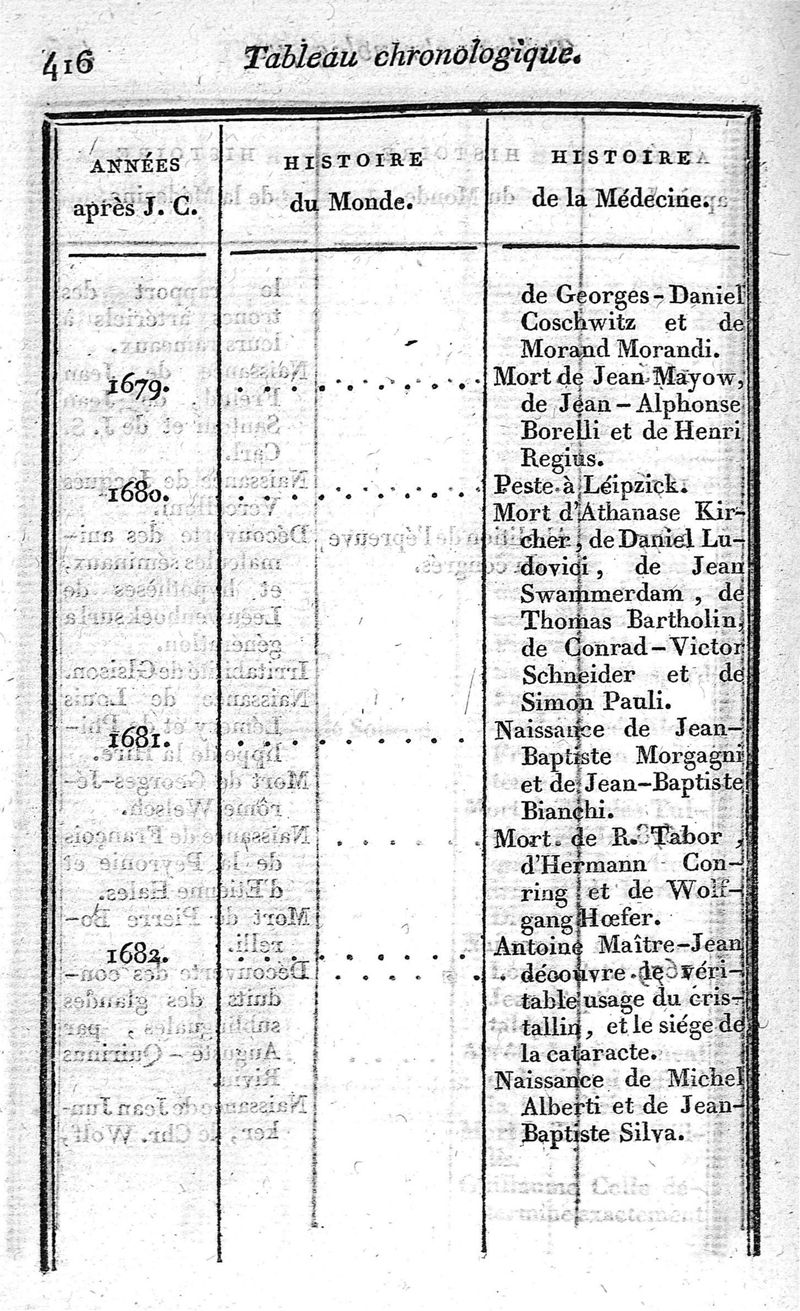 416
Tableau chronologique.
ANNÉES
après J. C.
HISTOIRE
du Monde.
HISTOIRE
de la Médecine.
de Georges-Daniel
Coschwitz et de
Morand Morandi.
1679. . . . . . . . . . . Mort de Jean Mayow,
de Jean-Alphonse
Borelli et de Henri
Regius.
1680. . . . . . . . . . . Peste à Léipzick.
Mort d'Athanase Kir-
cher, de Daniel Lu-
dovici, de Jean
Swammerdam, de
Thomas Bartholin,
de Conrad-Victor
Schneider et de
Simon Pauli.
1681. . . . . . . . . . . Naissance de Jean-
Baptiste Morgagni
et de Jean-Baptiste
Bianchi.
Mort de R. Tabor,
d'Hermann Con-
ring et de Wolf-
gang Hœfer.
1682. . . . . . . . . . . Antoine Maître-Jean
découvre le véri-
table usage du cris-
tallin, et le siége de
la cataracte.
Naissance de Michel
Alberti et de Jean-
Baptiste Silva.